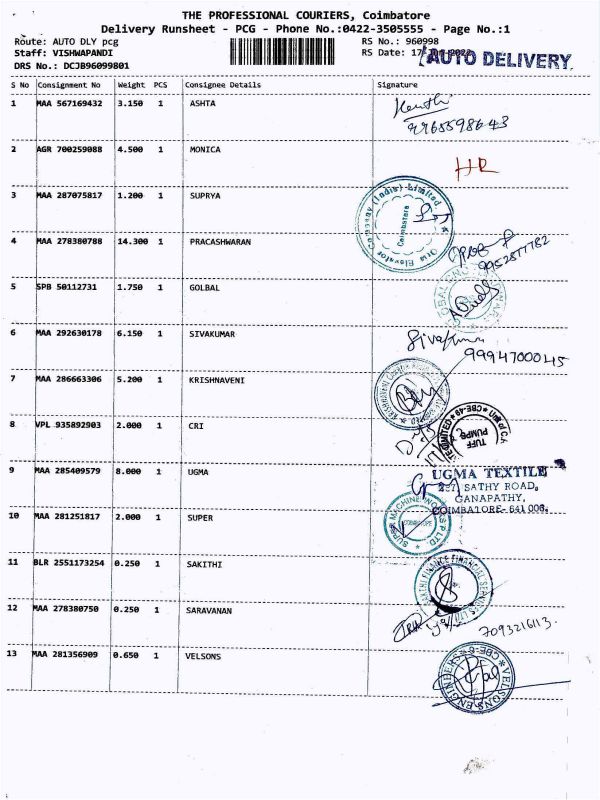 THE PROFESSIONAL COURIERS, Coimbatore
Delivery Runsheet - PCG - Phone No.:0422-3505555 - Page No.:1
Route: AUTO DLY pcg
RS No.: 960998
Staff: VISHWAPANDI
RS Date: 17
AUTO DELIVERY
DRS No.: DCJB96099801
S No Consignment No Weight PCS Consignee Details Signature
1 MAA 567169432 3.150 1 ASHTA
9965598643
2 AGR 700259088 4.500 1 MONICA
HR
3 MAA 287075817 1.200 1 SUPRYA
(India) Limited
Coimbatore
Elevator Company
4 MAA 278380788 14.300 1 PRACASHWARAN
9952877782
5 SPB 50112731 1.750 1 GOLBAL
6 MAA 292630178 6.150 1 SIVAKUMAR
Sivakumar
9994700045
7 MAA 286663306 5.200 1 KRISHNAVENI
8 VPL 935892903 2.000 1 CRI
TUFF
PUMPS
9 MAA 285409579 8.000 1 UGMA
UGMA TEXTILE
SATHY ROAD,
GANAPATHY,
COIMBATORE - 641 006.
10 MAA 281251817 2.000 1 SUPER
SUPER MACHINE WORKS P LTD
11 BLR 2551173254 0.250 1 SAKITHI
FINANCE FINANCIAL SERVICES LTD
12 MAA 278380750 0.250 1 SARAVANAN
7093216113
13 MAA 281356909 0.650 1 VELSONS
VELSONS ENGINEERS
CBE-6